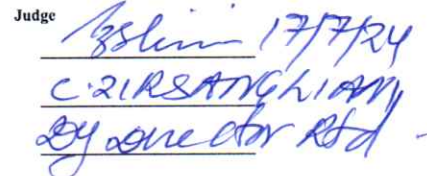 Judge 17/7/24
C. ZIRSANGLIANA
Dy Director Rtd